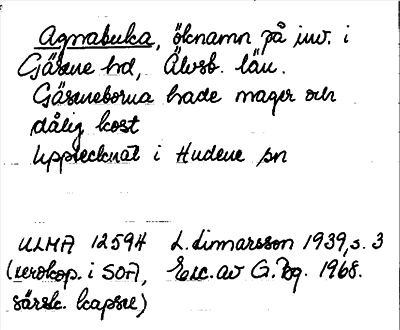 Agnabuka, öknamn på inv. i
Gäsene hd, Älvsb. län.
Gäseneborna hade mager och
dålig kost
Upptecknat i Hudene sn
ULMA 12594 L. Linnarsson 1939, s. 3
(xerokop. i SOA, Exc. av G. Bg. 1968.
särsk. kapsel)